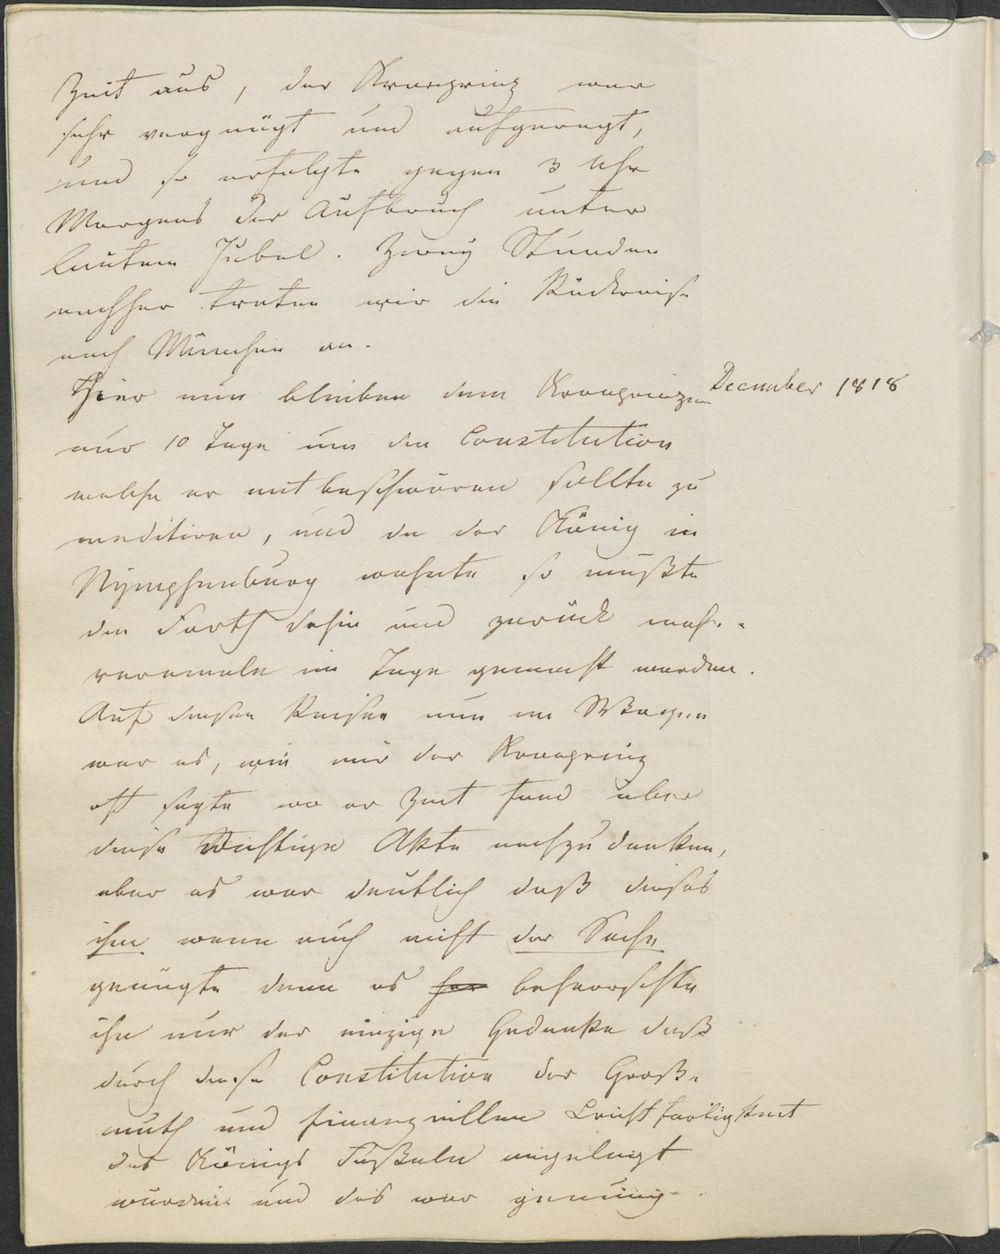 Zeit aus, der Kronprinz war
sehr vergnügt und aufgeregt,
und so erfolgte gegen 3 Uhr
Morgens der Aufbruch unter
lautem Jubel. Zwey Stunden
nachher traten wir die Rückreise
nach München an.
Hier nun blieben dem Kronprinzen
December 1818
nur 10 Tage um die Constitution
welche er mitbeschwören sollte zu
meditiren, und da der König in
Nymphenburg wohnte so mußte
die Farth dahin und zurück meh-
reremale im Tage gemacht werden.
Auf diesen Reisen nun im Wagen
war es, wie mir der Kronprinz
oft sagte wo er Zeit fand über
diese Wichtige Akte nachzudenken,
aber es war deutlich daß dieses
ihm wenn auch nicht der Sache
genügte denn es beherrschte
ihn nur der einzige Gedanke daß
durch diese Constitution der Groß-
muth und finanziellen Leichtfertigkeit
des Königs Fußeln angelegt
würden und das war genung.